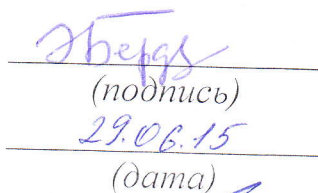 (подпись)
29.06.15
(дата)